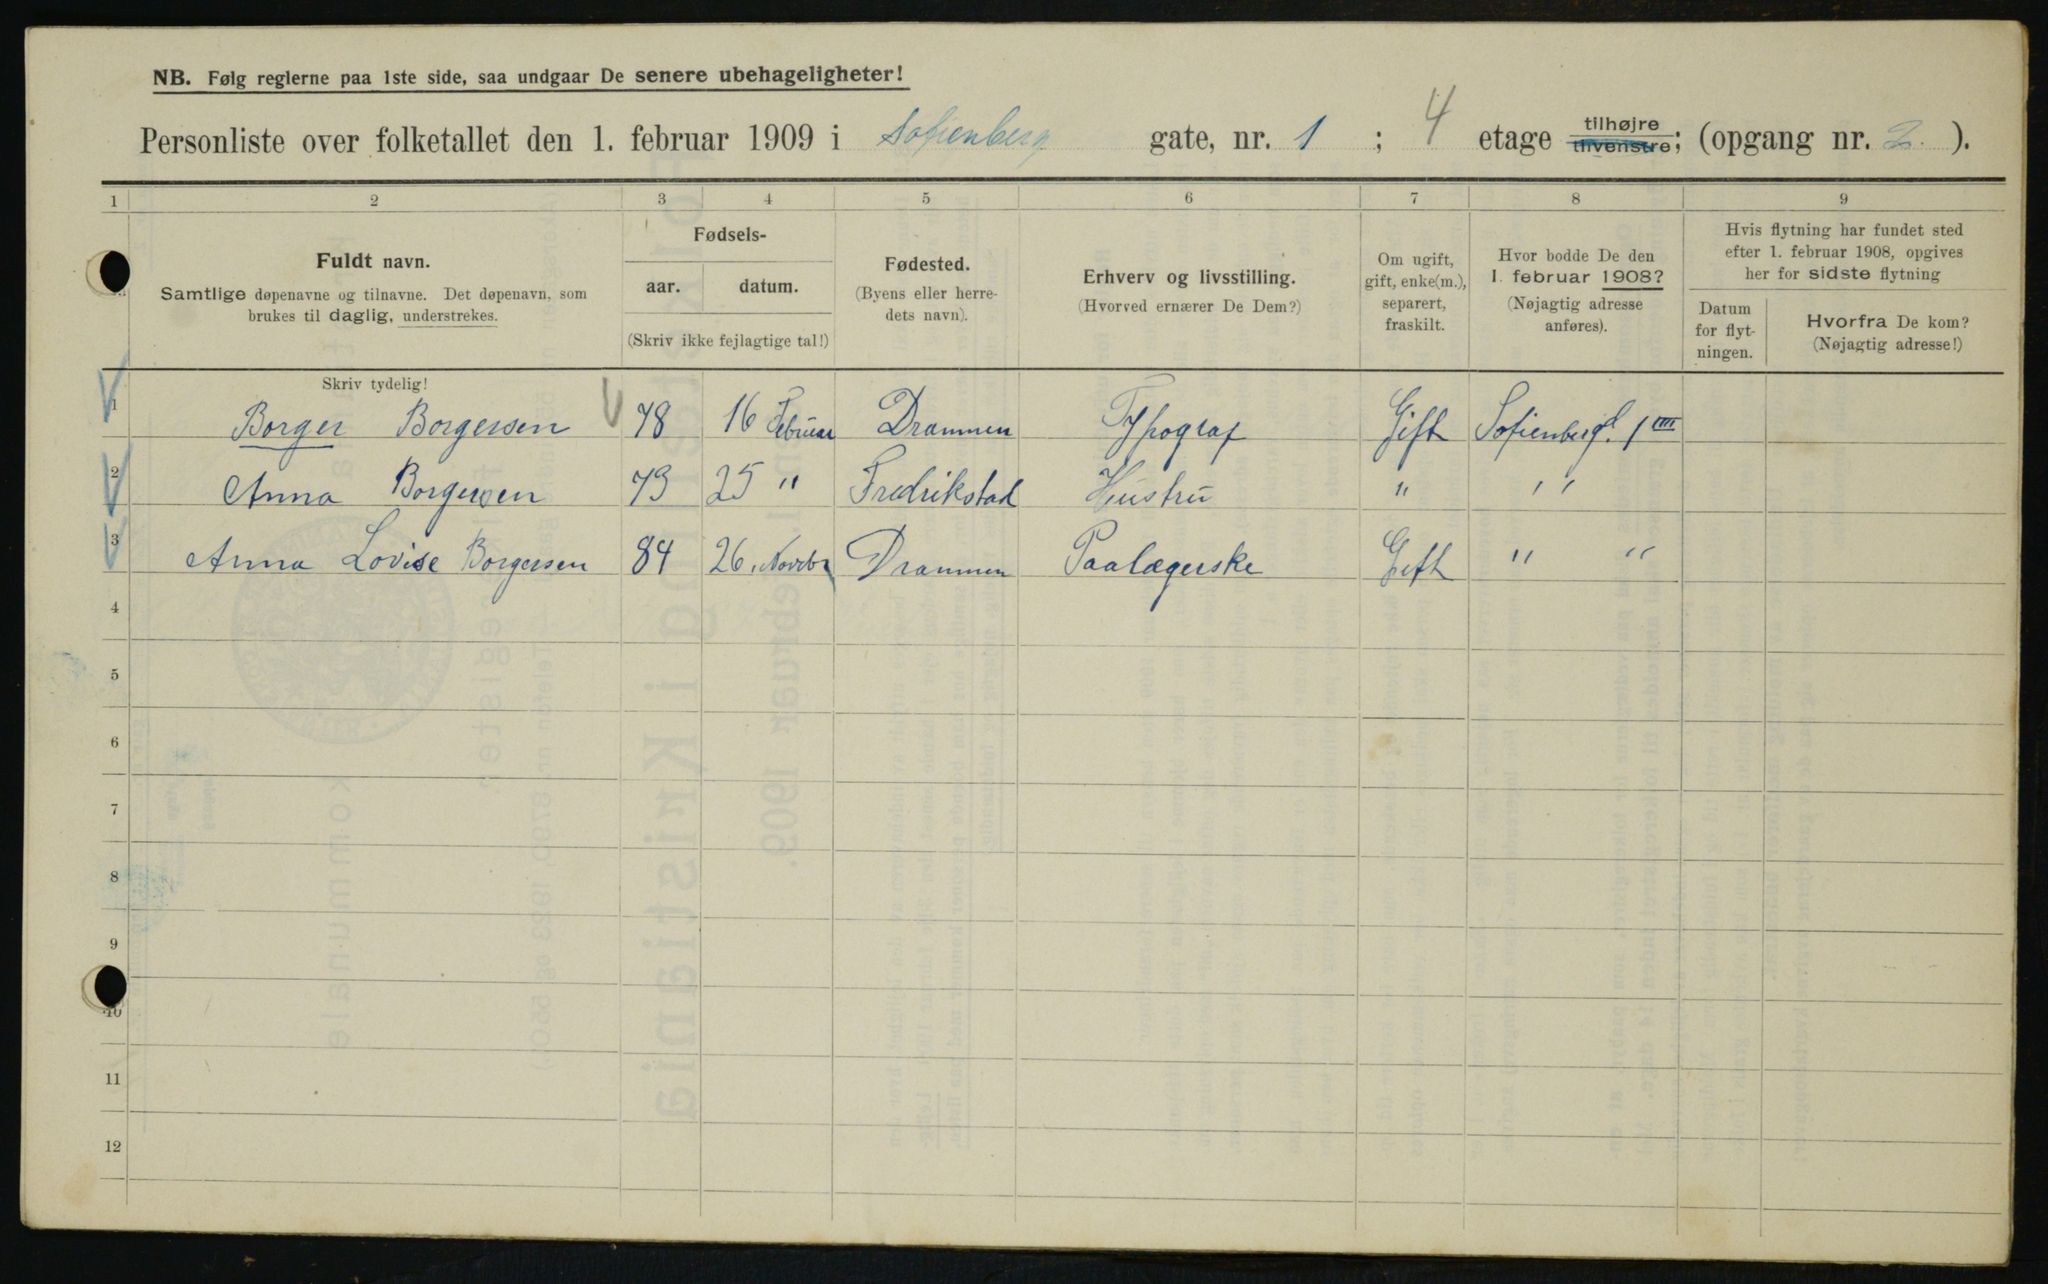 NB. Følg reglerne paa 1ste side, saa undgaar De senere ubehageligheter!
Personliste over folketallet den 1. februar 1909 i Sofienberg gate, nr. 1 ; 4 etage tilhøjre tilvenstre; (opgang nr. 2. ).
1 2 3 4 5 6 7 8 9
Fuldt navn.
Samtlige døpenavne og tilnavne. Det døpenavn, som
brukes til daglig, understrekes.
Fødsels-
aar. datum.
(Skriv ikke fejlagtige tal!)
Fødested.
(Byens eller herre-
dets navn).
Erhverv og livsstilling.
(Hvorved ernærer De Dem?)
Om ugift,
gift, enke(m.),
separert,
fraskilt.
Hvor bodde De den
1. februar 1908?
(Nøjagtig adresse
anføres).
Hvis flytning har fundet sted
efter 1. februar 1908, opgives
her for sidste flytning
Datum
for flyt-
ningen.
Hvorfra De kom?
(Nøjagtig adresse!)
Skriv tydelig!
1 Borger Borgersen 78 16 Februar Drammen Typograf Gift Sofienbergd. 1 IIII
2 Anna Borgersen 73 25 " Fredrikstad Hustru " " 
3 Anna Lovise Borgersen 84 26. Novebr Drammen Paalægerske Gift " "
4
5
6
7
8
9
10
11
12